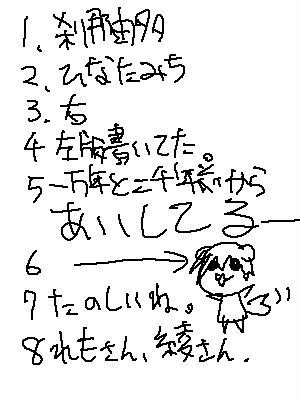 1、刹那由多
2、ひなたみち
3、右
4 左版書いてた。
5 一万年と二千年前から
あいしてるー
6 →
7 たのしいね。
8 れもさん、綾さん.